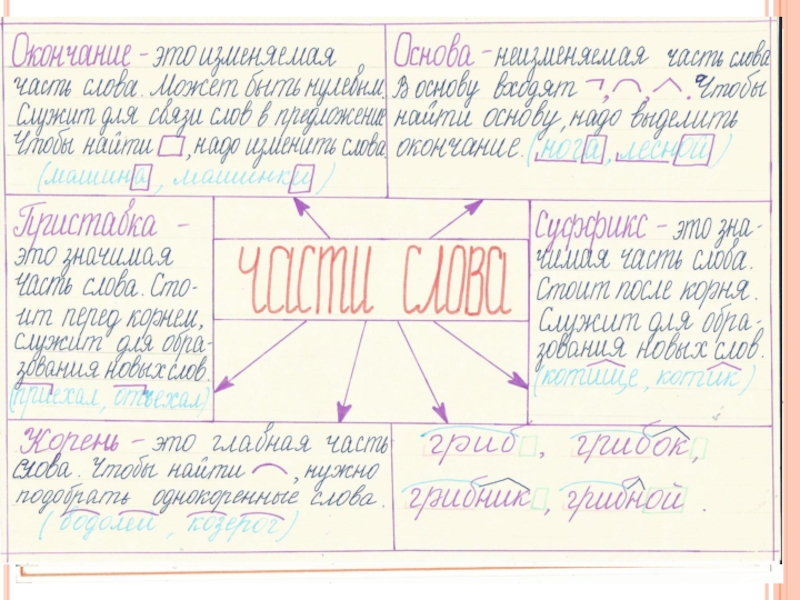 Окончание – это изменяемая
часть слова. Может быть нулевым.
Служит для связи слов в предложение
Чтобы найти , надо изменить слова.
(машина, машинки)
Основа – неизменяемая часть слова
В основу входят , , . Чтобы
найти основу, надо выделить
окончание. (нога, лесной)
Приставка –
это значимая
часть слова. Сто-
ит перед корнем,
служит для обра-
зования новых слов.
(приехал, отъехал)
части слова
Суффикс – это зна-
чимая часть слова.
Стоит после корня.
Служит для обра-
зования новых слов.
(котище, котик)
Корень – это главная часть
слова. Чтобы найти , нужно
подобрать однокоренные слова.
(водолей, козерог)
гриб , грибок ,
грибник , грибной .